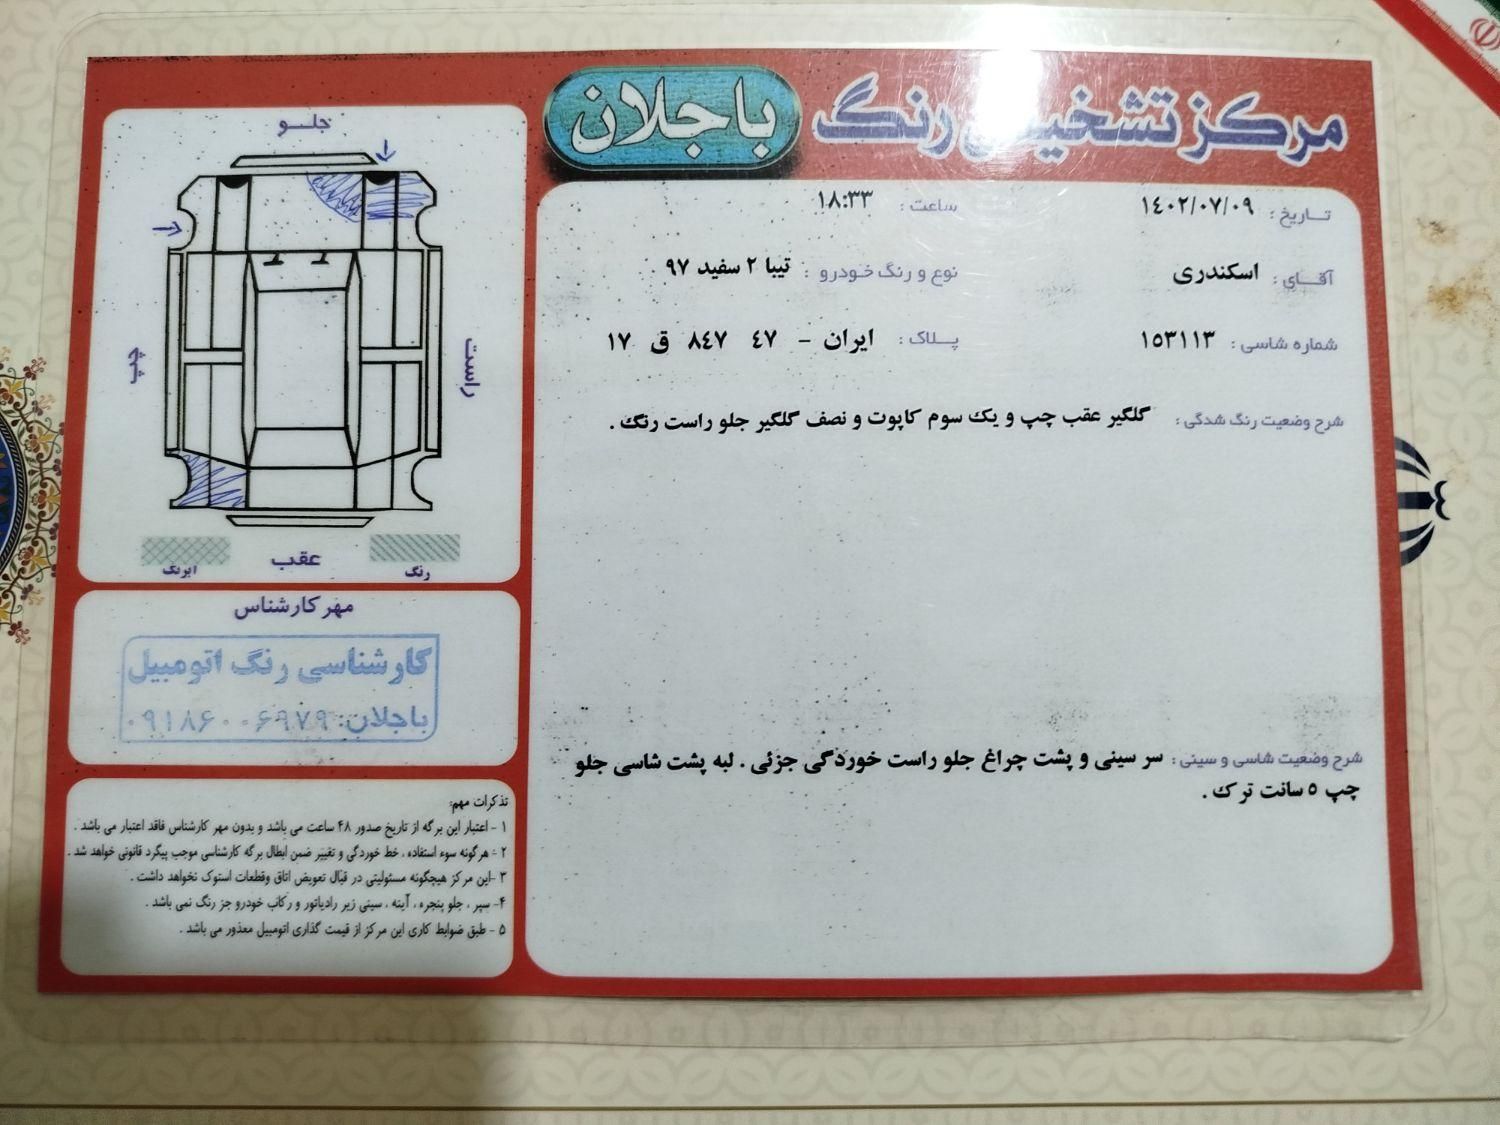 مرکز تشخیص رنگ باجلان
تاریخ : ۱۴۰۲/۰۷/۰۹ ساعت : ۱۸:۳۳
آقای : اسکندری نوع و رنگ خودرو : تیبا ۲ سفید ۹۷
شماره شاسی : ۱۵۳۱۱۳ پلاک : ایران - ۴۷ ۸۴۷ ق ۱۷
شرح وضعیت رنگ شدگی : گلگیر عقب چپ و یک سوم کاپوت و نصف گلگیر جلو راست رنگ .
شرح وضعیت شاسی و سینی : سر سینی و پشت چراغ جلو راست خوردگی جزئی . لبه پشت شاسی جلو
چپ ۵ سانت ترک .
جلو
راست
چپ
عقب
رنگ
آبرنگ
مهر کارشناس
کارشناسی رنگ اتومبیل
باجلان: ۰۹۱۸۶۰۰۶۹۷۹
تذکرات مهم:
۱ - اعتبار این برگه از تاریخ صدور ۴۸ ساعت می باشد و بدون مهر کارشناس فاقد اعتبار می باشد .
۲ - هرگونه سوء استفاده ، خط خوردگی و تغییر ضمن ابطال برگه کارشناسی موجب پیگرد قانونی خواهد شد .
۳ -این مرکز هیچگونه مسئولیتی در قبال تعویض اتاق وقطعات استوک نخواهد داشت .
۴- سپر ، جلو پنجره ، آینه ، سینی زیر رادیاتور و رکاب خودرو جز رنگ نمی باشد .
۵ - طبق ضوابط کاری این مرکز از قیمت گذاری اتومبیل معذور می باشد .